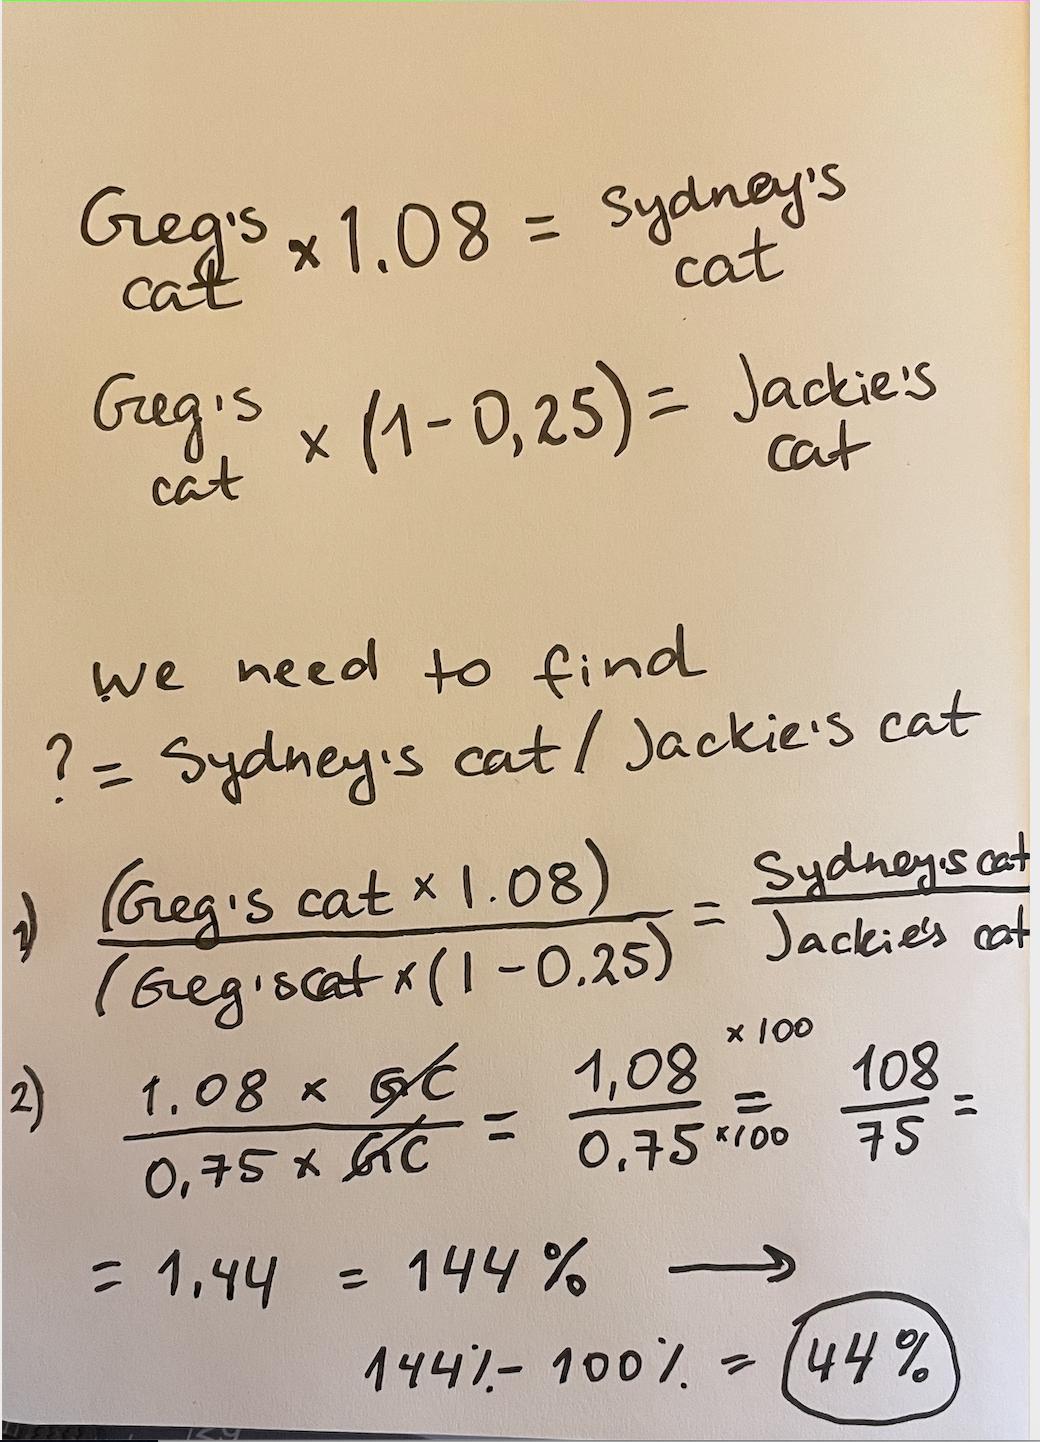 Greg's cat × 1.08 = Sydney's cat
Greg's cat × (1-0,25) = Jackie's cat
we need to find
? = Sydney's cat / Jackie's cat
1) (Greg's cat × 1.08) / (Greg's cat × (1-0.25) = Sydney's cat / Jackie's cat
2) 1.08 × GC / 0,75 × GC = 1,08 / 0.75 ×100 = ×100 108 / 75 =
= 1.44 = 144% →
144% - 100% = 44%